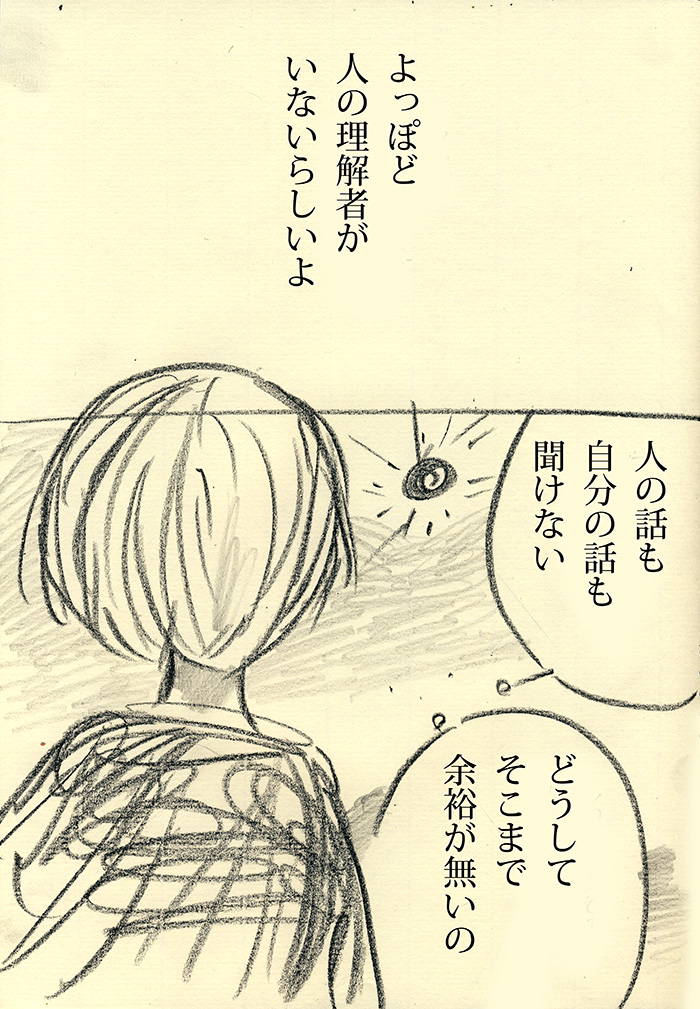 よっぽど
人の理解者が
いないらしいよ
人の話も
自分の話も
聞けない
どうして
そこまで
余裕が無いの